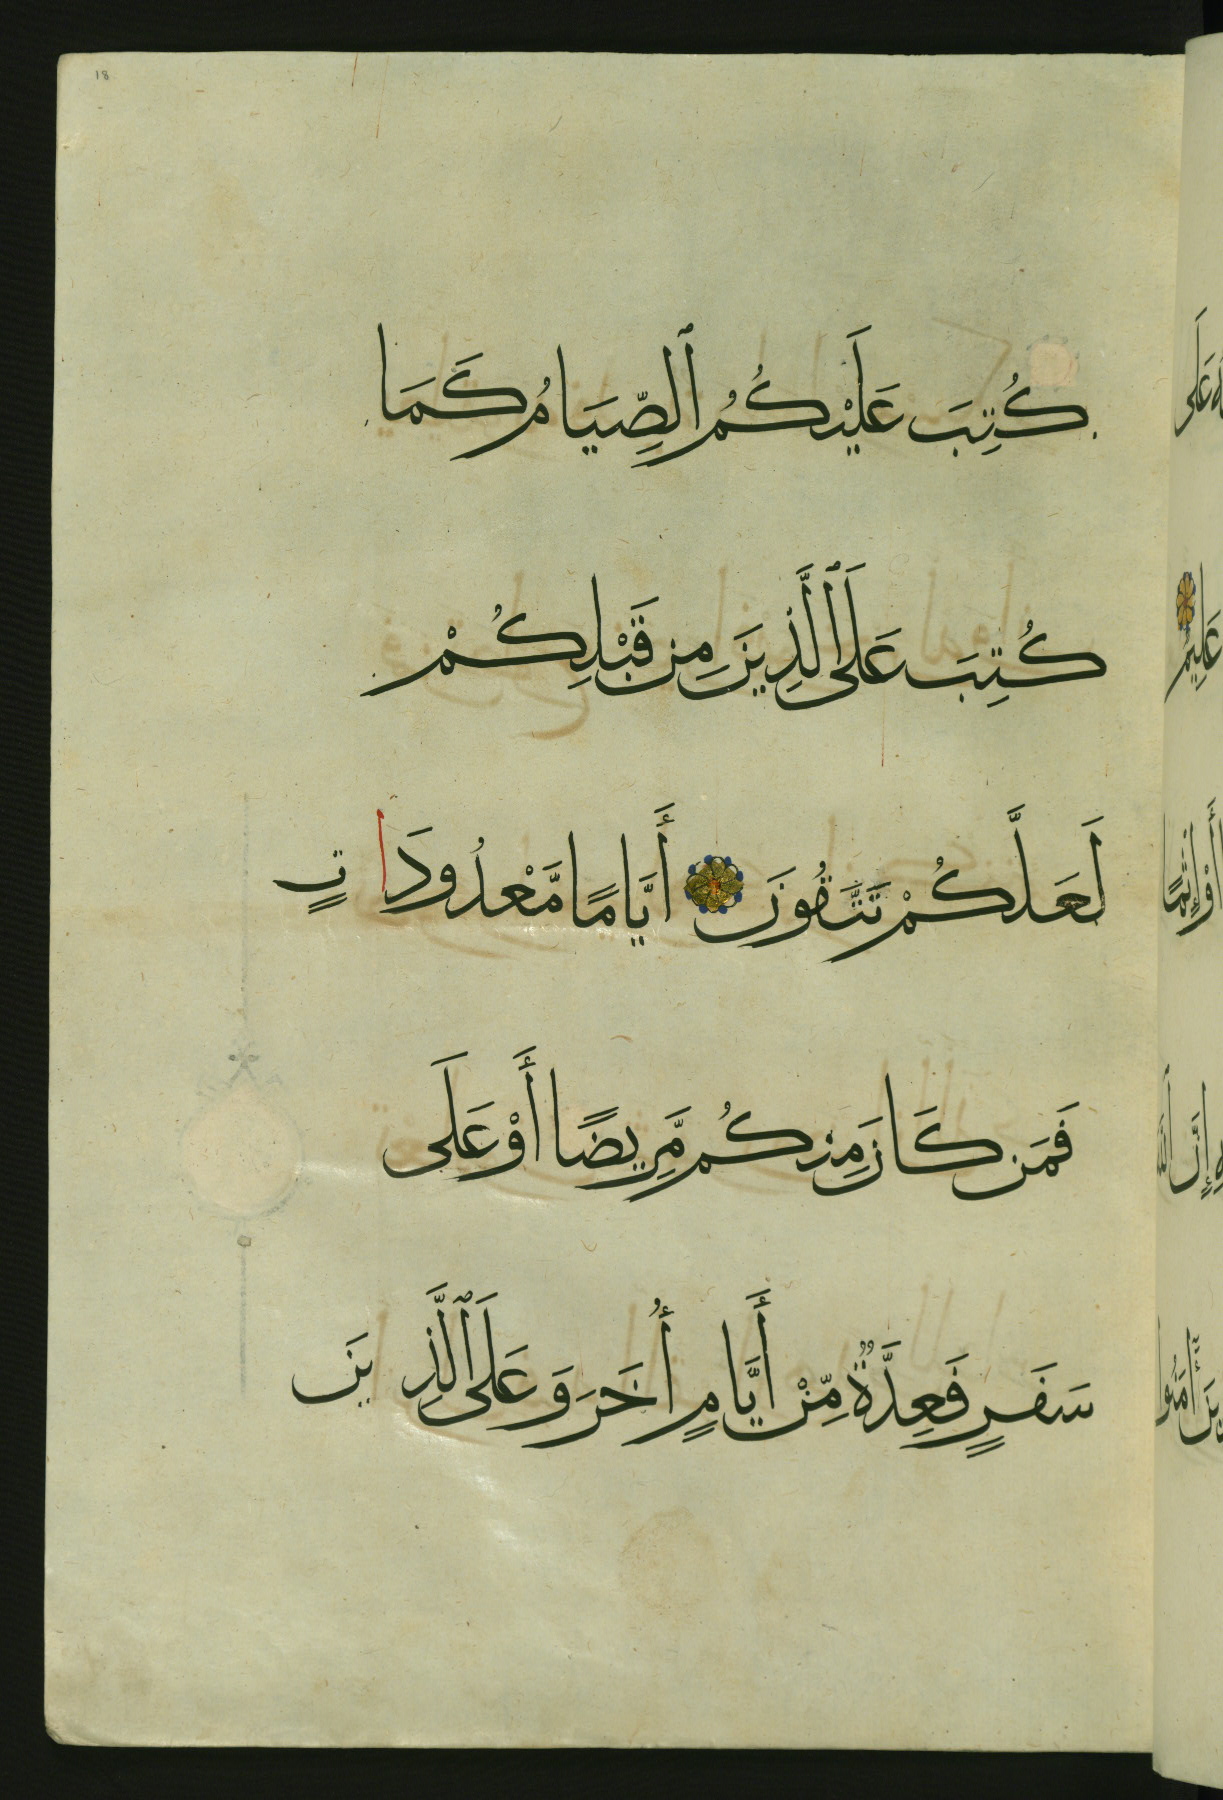 18
كُتِبَ عَلَيْكُمُ ٱلصِّيَامُ كَمَا
كُتِبَ عَلَى ٱلَّذِينَ مِن قَبْلِكُمْ
لَعَلَّكُمْ تَتَّقُونَ أَيَّامًا مَّعْدُودَاتٍ
فَمَن كَانَ مِنكُم مَّرِيضًا أَوْ عَلَى
سَفَرٍ فَعِدَّةٌ مِّنْ أَيَّامٍ أُخَرَ وَعَلَى ٱلَّذِينَ